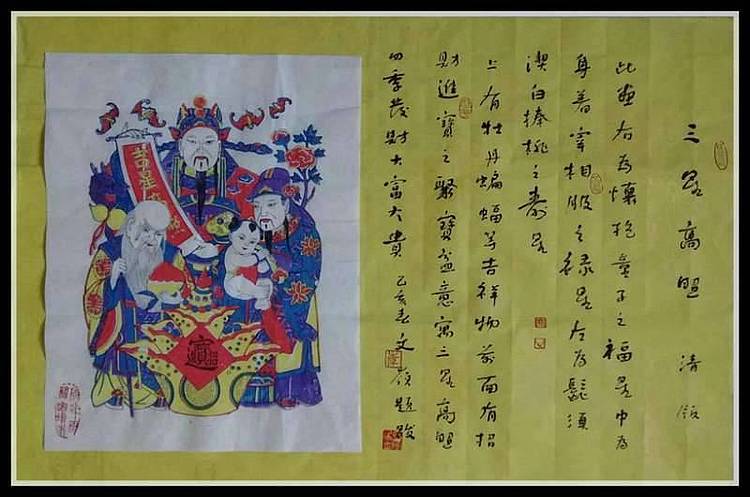 三星高照 清版
此画右为懷抱童子之福星中为
身着宰相服之禄星左为鬍须
潔白捧桃之寿星
上有牡丹蝙蝠等吉祥物前面有招
财進寶之聚寶盆意寓三星高照
四季发财大富大贵 己亥春文 题跋
吉星高照